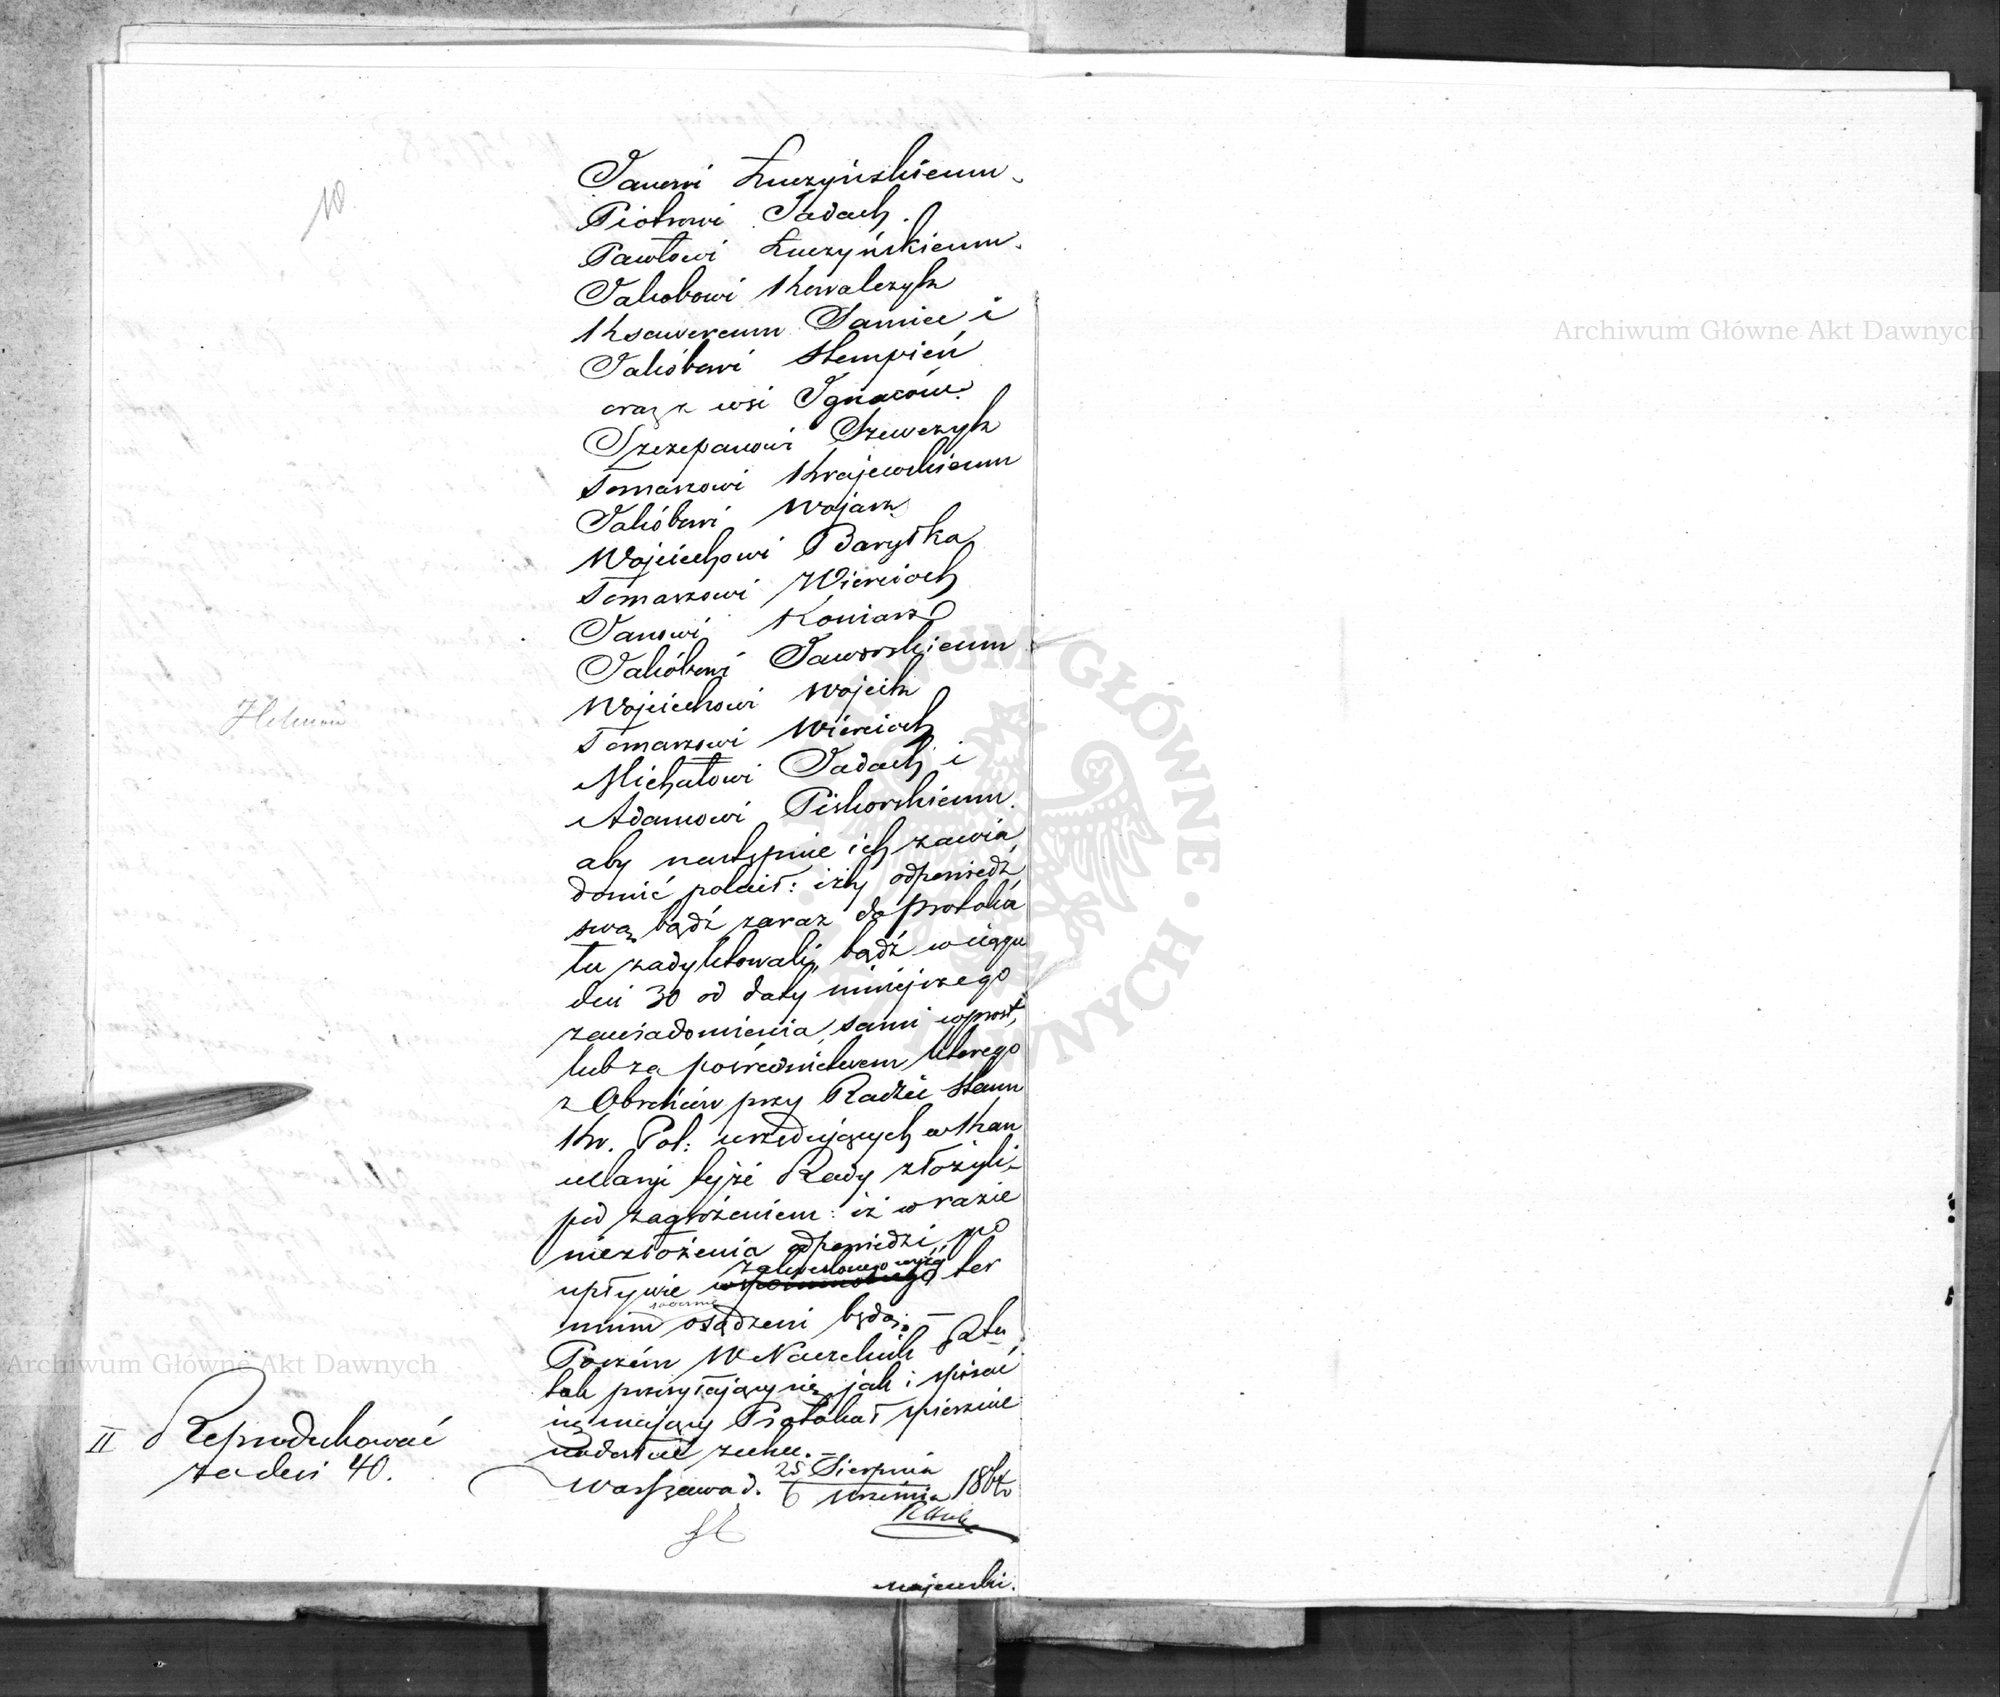 10
Janowi Łuczyńskiemu
Piotrowi Jadach.
Pawłowi Łuczyńskiemu.
Jakobowi Kowalczyk
Ksaweremu Samiec i
Jakóbowi Stempień
oraz z wsi Ignaców.
Szczepanowi Szewczyk
Tomaszowi Krajewskiemu
Jakóbowi Wojas
Wojciechowi Baryłka
Tomaszowi Wiercioch
Janowi Koniarz
Jakóbowi Jaworskiemu
Wojciechowi Wójcik
Tomaszowi Wiercioch
Michałowi Jadach i
Adamowi Piskorskiemu.
aby następnie ich zawia
domić polecił: iżby odpowiedź
swą bądź zaraz do protokó
łu zadyktowali, bądź w ciągu
dni 30 od daty niniejszego
zawiadomienia, sami wprost,
lub za pośrednictwem którego
z Obrońców przy Radzie Stanu
Kr. Pol: urzędujących w Kan
cellarji tejże Rady złożyli
pod zagrożeniem: iż w razie
niezłożenia odpowiedzi, po
upływie zakreślonego wyżej ter
minu osądzeni będą. —
Poczém W Naczelnik
tak przesyłający się jak i spisać
się mający Protokół śpiesznie
nadesłać zechce. —
Warszawa d. 25 Sierpnia
6 Września 1864
Majewski.
II Reprodukować
za dni 40.
Archiwum Główne Akt Dawnych
Archiwum Główne Akt Dawnych
ARCHIWUM GŁÓWNE AKT DAWNYCH